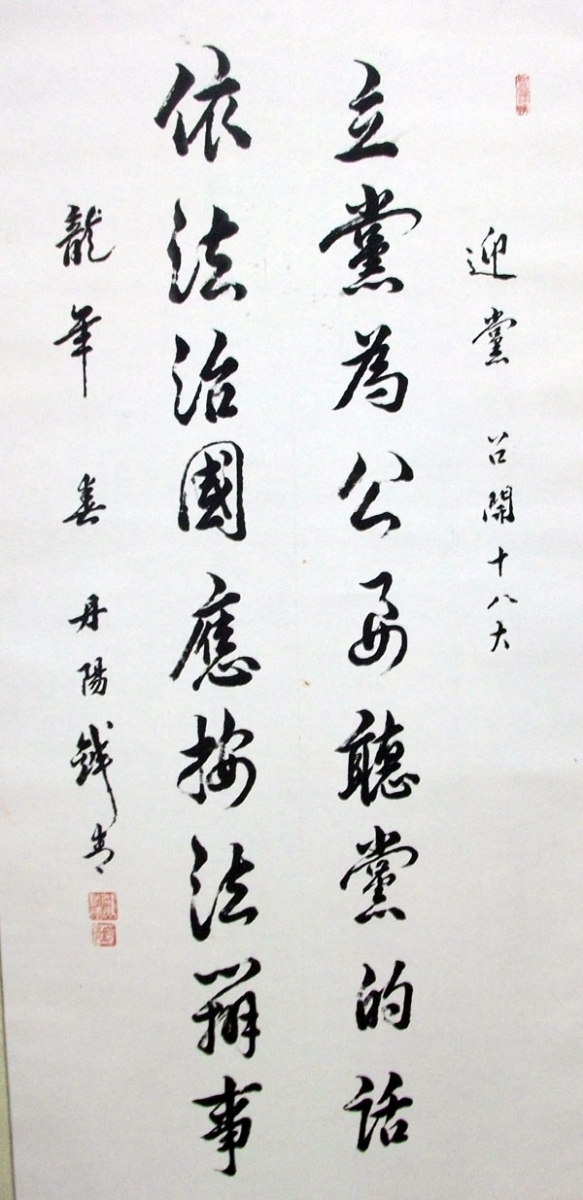 迎黨召開十八大
立黨為公要聽黨的話
依法治國應按法辦事
龍年春丹陽錢青